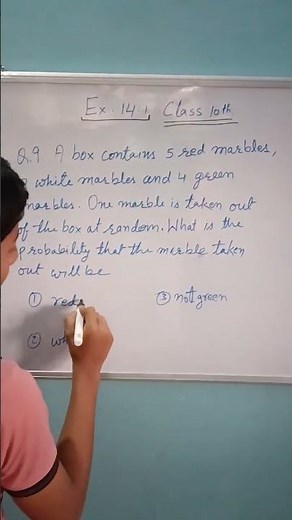 Ex. 14.1 Class 10th
Q.9 A box contains 5 red marbles,
white marbles and 4 green
marbles. One marble is taken out
of the box at random. What is the
probability that the marble taken
out will be
① red
③ not green
②